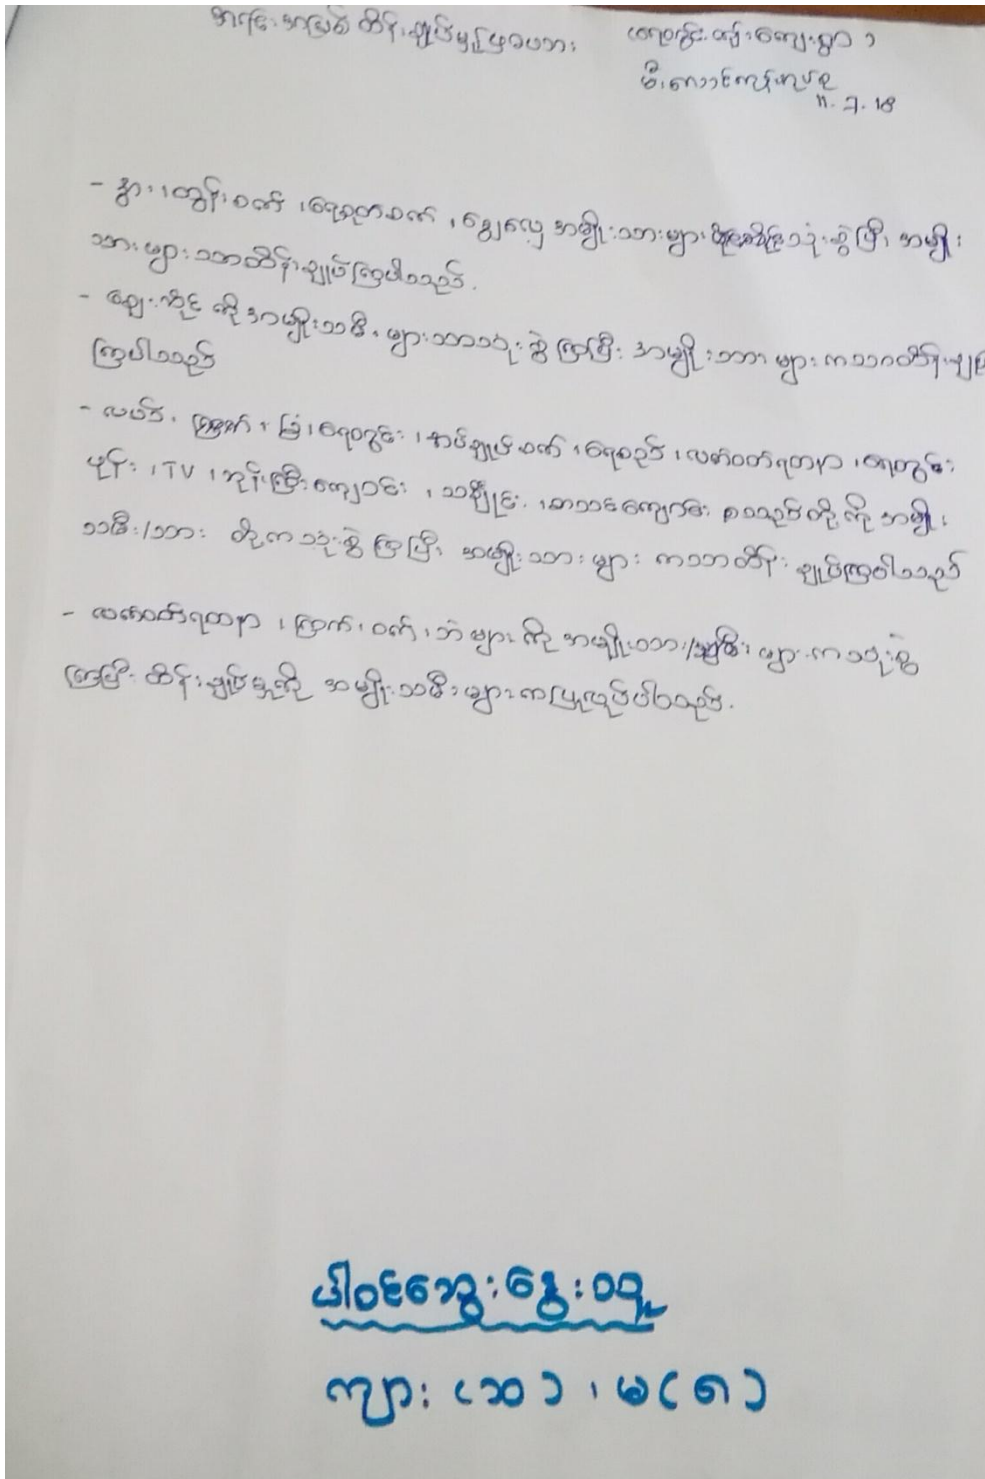 အရင်းအမြစ် ထိန်းချုပ်မှု
၁၁.၇.18
- နွား၊ ထွန်းစက်၊ ရေစုတ်စက်၊ ရွှေလှေ့ အမျိုးသားများ သုံးစွဲပြီး အမျိုး
သားများသာထိန်းချုပ်ကြပါသည်.
- ဈေးဆိုင် ကို အမျိုးသမီးများသာသုံးစွဲကြပြီး အမျိုးသားများကသာထိန်းချုပ်
ကြပါသည်
- လယ်၊ ကြက်၊ ခြံ၊ ရေတွင်း၊ အပ်ချုပ်စက်၊ ရေစည်၊ လက်ဝတ်ရတနာ၊ ရေတွင်း
ဖုန်း၊ TV၊ ဘုန်းကြီးကျောင်း၊ သင်္ချိုင်း၊ စာသင်ကျောင်း စသည်တို့ကို အမျိုး
သမီး/သား တို့ကသုံးစွဲကြပြီး အမျိုးသားများ ကသာထိန်းချုပ်ကြပါသည်
- လက်ဝတ်ရတနာ၊ ကြက်၊ ဝက်၊ ဘဲများကို အမျိုးသား/သမီးများကသုံးစွဲ
ကြပြီး ထိန်းချုပ်မှုကို အမျိုးသမီးများကပြုလုပ်ပါသည်.
ပါဝင်ဆွေးနွေးသူ
ကျား (၁၁)၊ မ (၈)